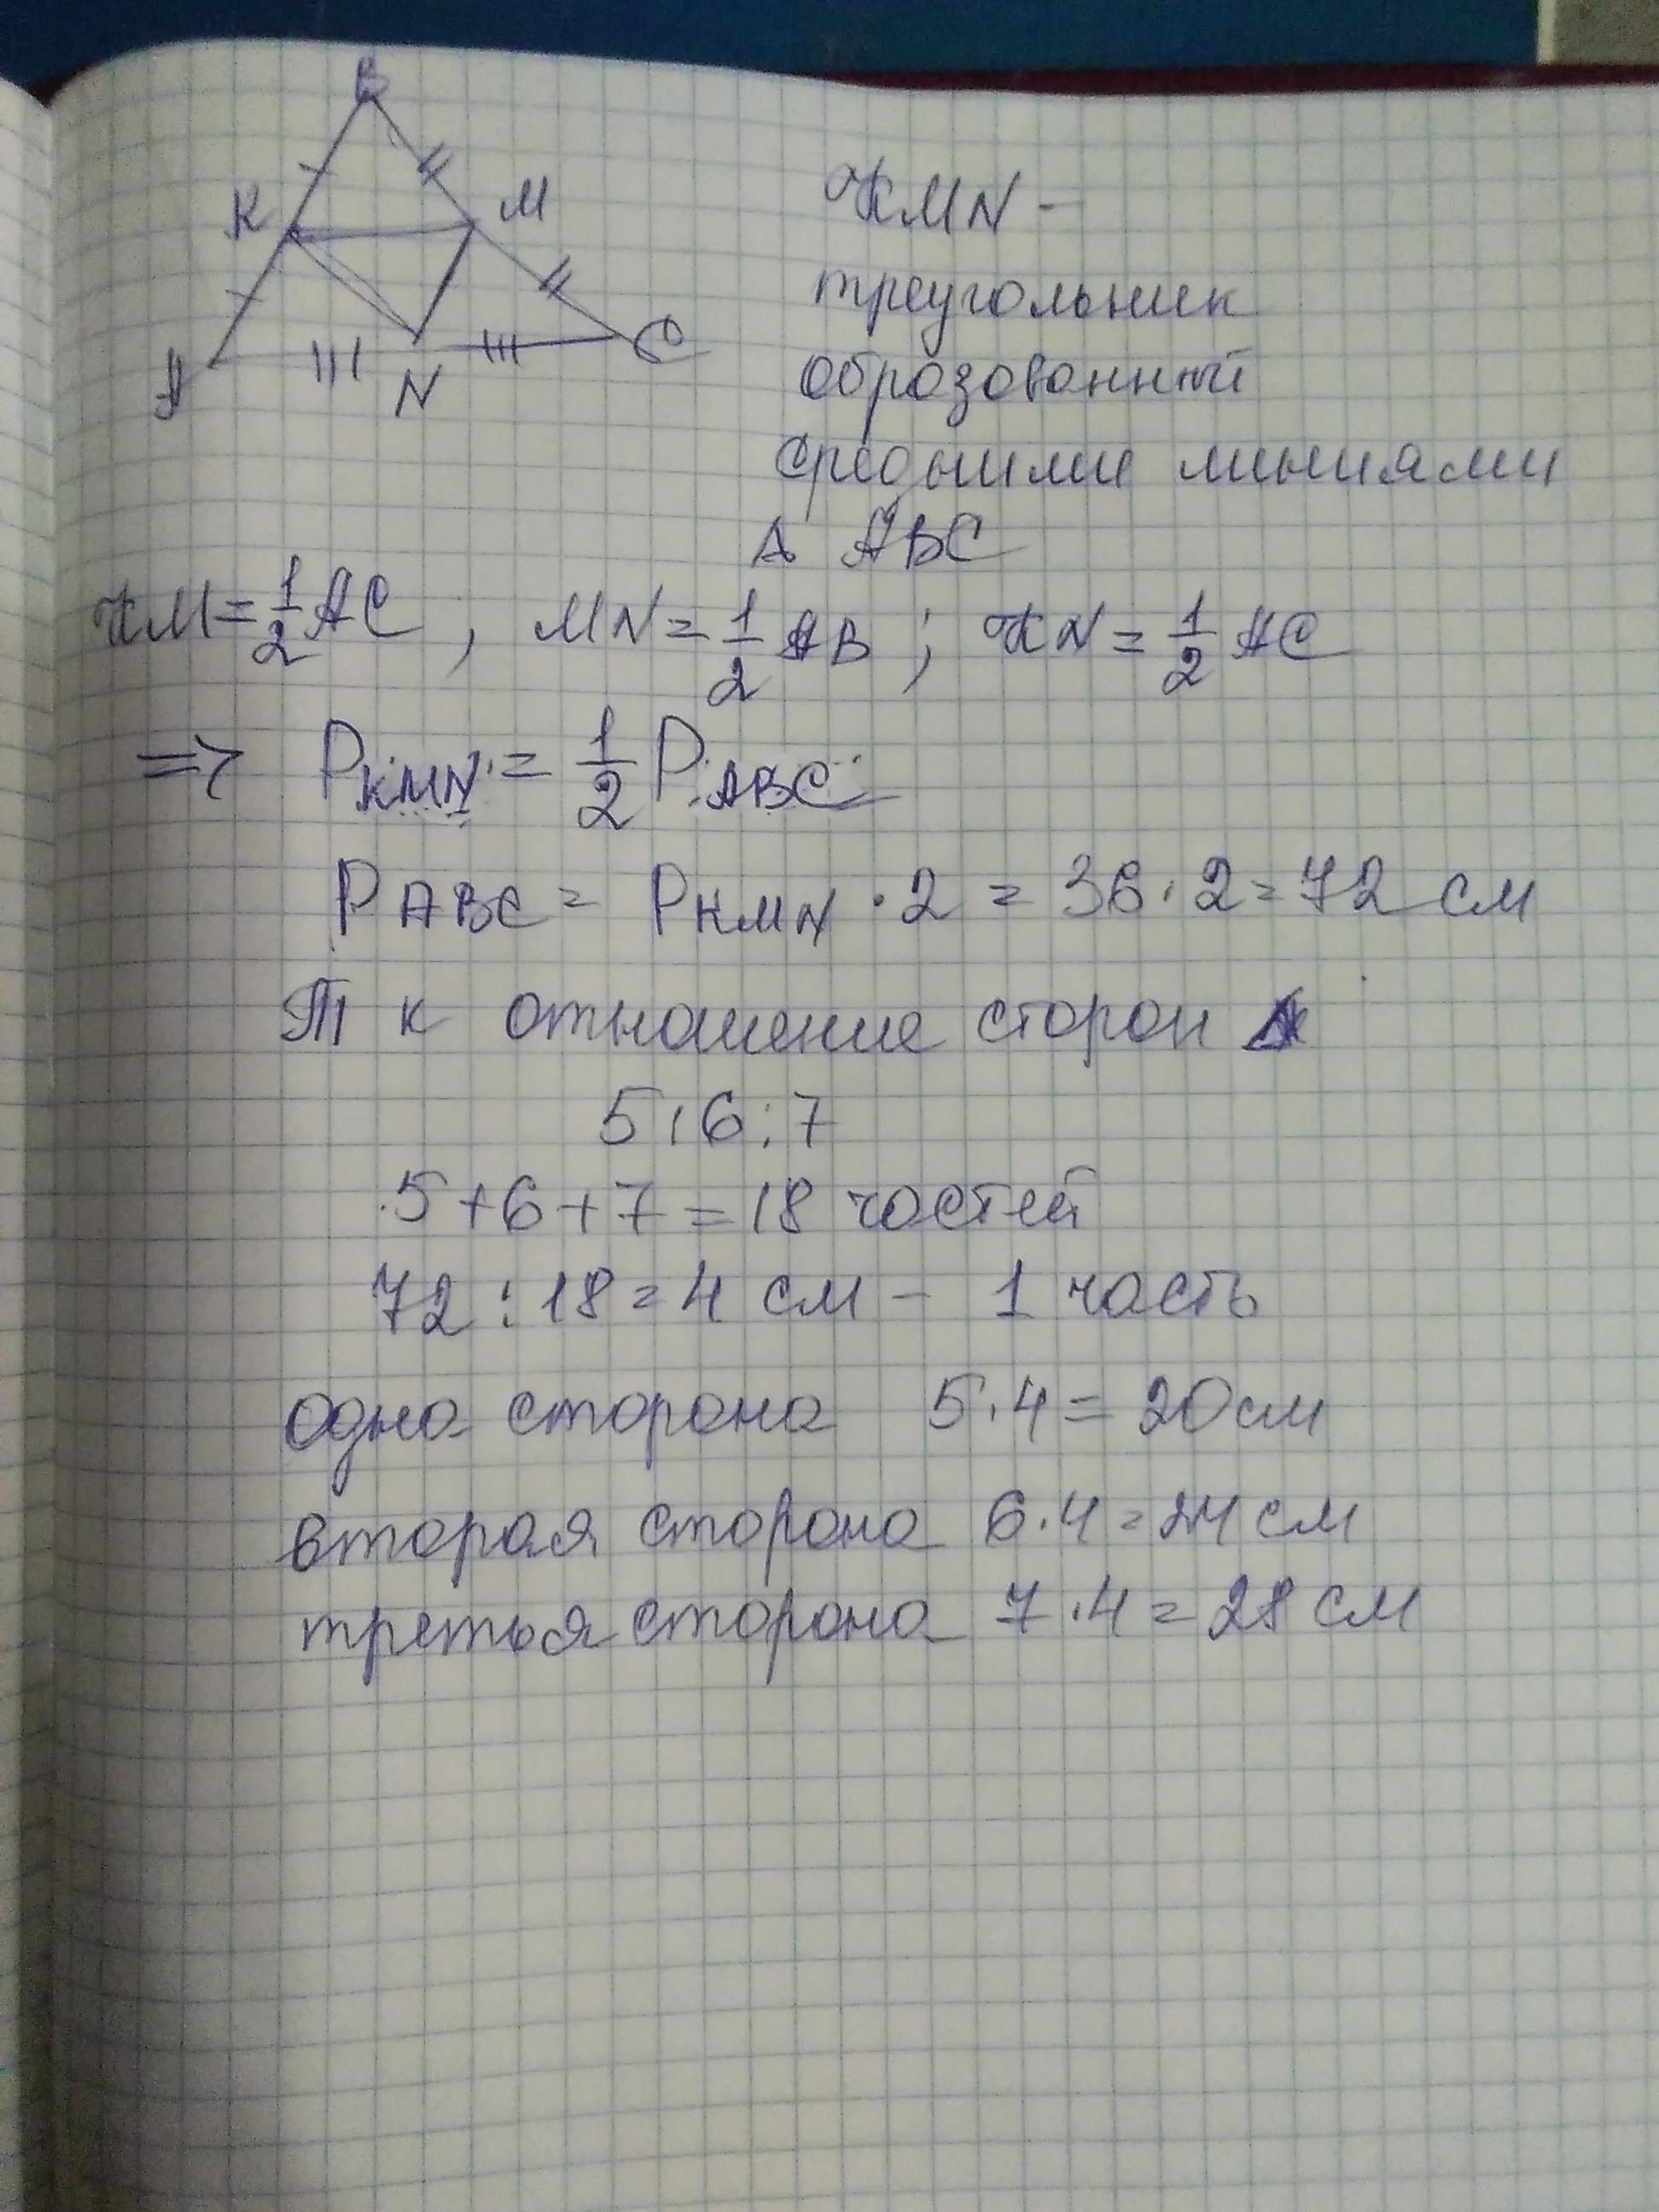 B
K
M
A
N
C
KMN -
треугольник
образованный
средними линиями
Δ ABC
KM = 1/2 AC , MN = 1/2 AB ; KN = 1/2 AC
=> P KMN = 1/2 P ABC
P ABC = P KMN · 2 = 36 · 2 = 72 см
Т к отношение сторон Δ
5 : 6 : 7
5 + 6 + 7 = 18 частей
72 : 18 = 4 см - 1 часть
одна сторона 5 · 4 = 20 см
вторая сторона 6 · 4 = 24 см
третья сторона 7 · 4 = 28 см